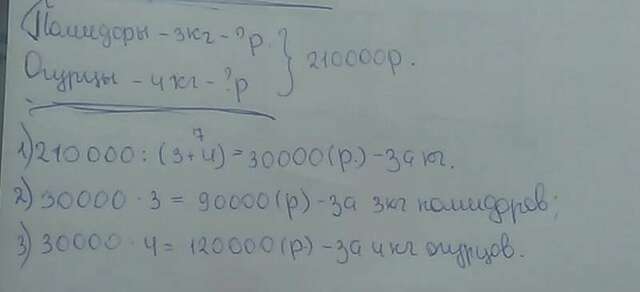 Помидоры - 3кг - ?р.
Огурцы - 4кг - ?р
} 210000р.
1) 210 000 : (3+4) = 30000(р.) - за кг.
7
2) 30000 · 3 = 90000(р) - за 3кг помидоров;
3) 30000 · 4 = 120000(р) - за 4кг огурцов.